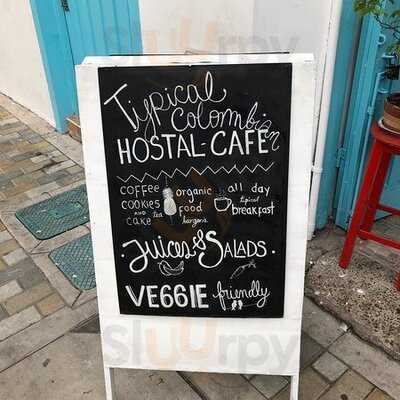 Typical Colombian
HOSTAL-CAFÉ
COFFEE organic all day
COOKIES food typical
AND tea breakfast
CAKE
Juices & SALADS
VEGGIE friendly
slurrpy